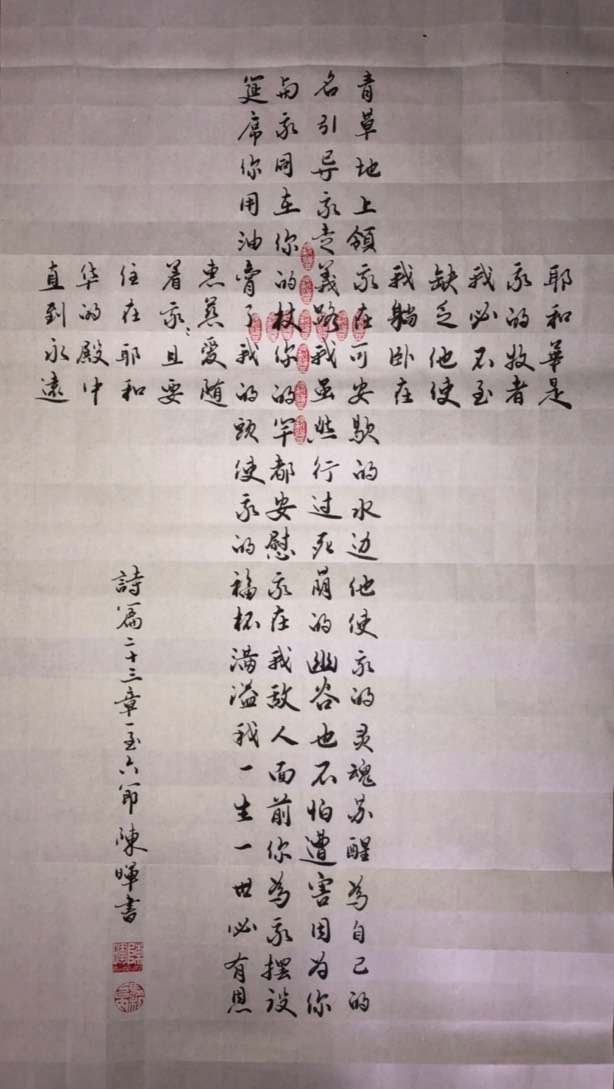 耶和華是
我的牧者
我必不至
缺乏他使
我躺卧在
青草地上領我在可安歇的水边他使我的灵魂苏醒為自己的
名引导我走義路我虽然行过死荫的幽谷也不怕遭害因为你
与我同在你的杖你的竿都安慰我在我敌人面前你為我摆设
筵席你用油膏了我的頭使我的福杯满溢我一生一世必有恩
惠慈爱随
着我且要
住在耶和
华的殿中
直到永遠
詩篇二十三章一至六節 陳暉書